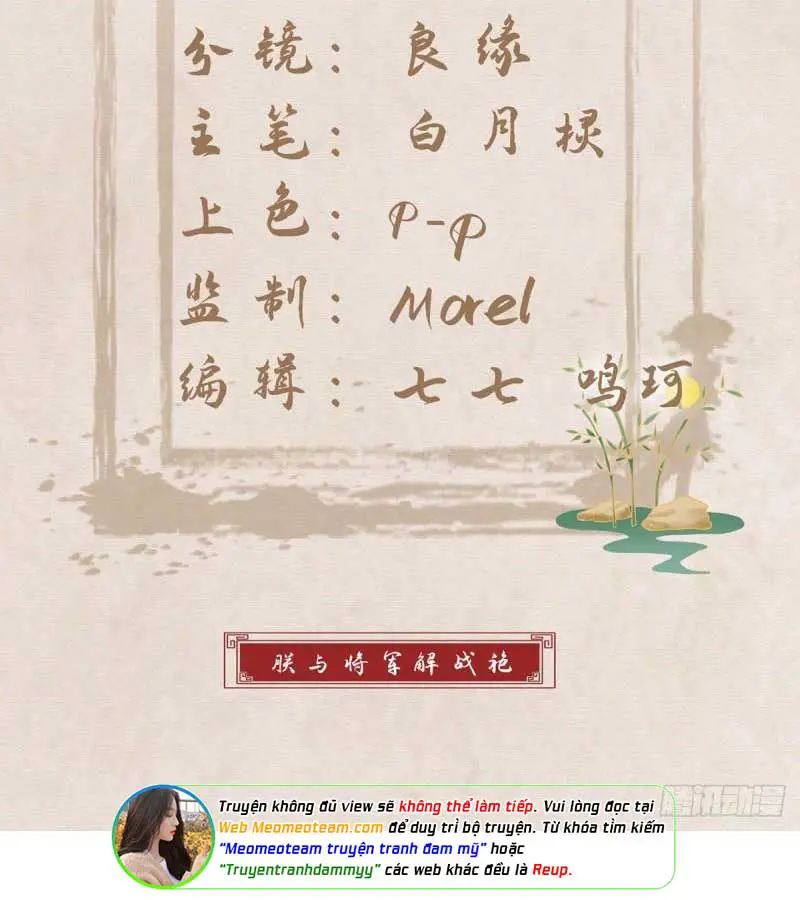 分镜： 良缘
主笔： 白月棂
上色： P-p
监制： Morel
编辑： 七七 鸣珂
朕与将军解战袍
腾讯动漫
Truyện không đủ view sẽ không thể làm tiếp. Vui lòng đọc tại
Web Meomeoteam.com để duy trì bộ truyện. Từ khóa tìm kiếm
“Meomeoteam truyện tranh đam mỹ” hoặc
“Truyentranhdammyy” các web khác đều là Reup.